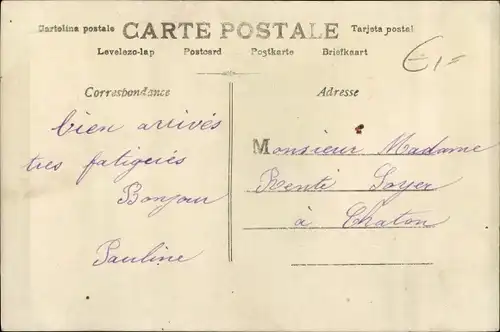 Cartolina postale CARTE POSTALE Tarjeta postal
Levelezo-lap Postcard Postkarte Briefkaart
€1=
Correspondance
bien arrivés
tres fatigués
Bonjour
Pauline
Adresse
Monsieur Madame
René Soyer
à Chaton